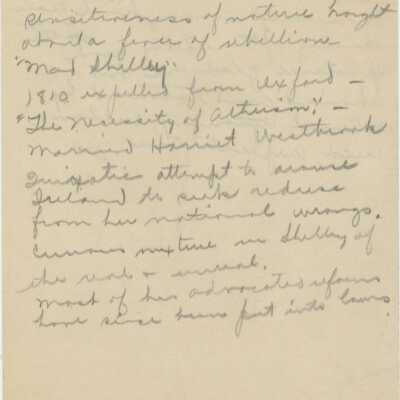 sensitiveness of nature brought
about a fever of rebellion
"Mad Shelley".
1810 expelled from Oxford –
"The Necessity of Atheism," –
Married Harriet Westbrook
Quixotic attempt to arouse
Ireland to seek redress
from her national wrongs.
Curious mixture in Shelley of
the real & unreal.
Most of his advocated reforms
have since been put into laws.